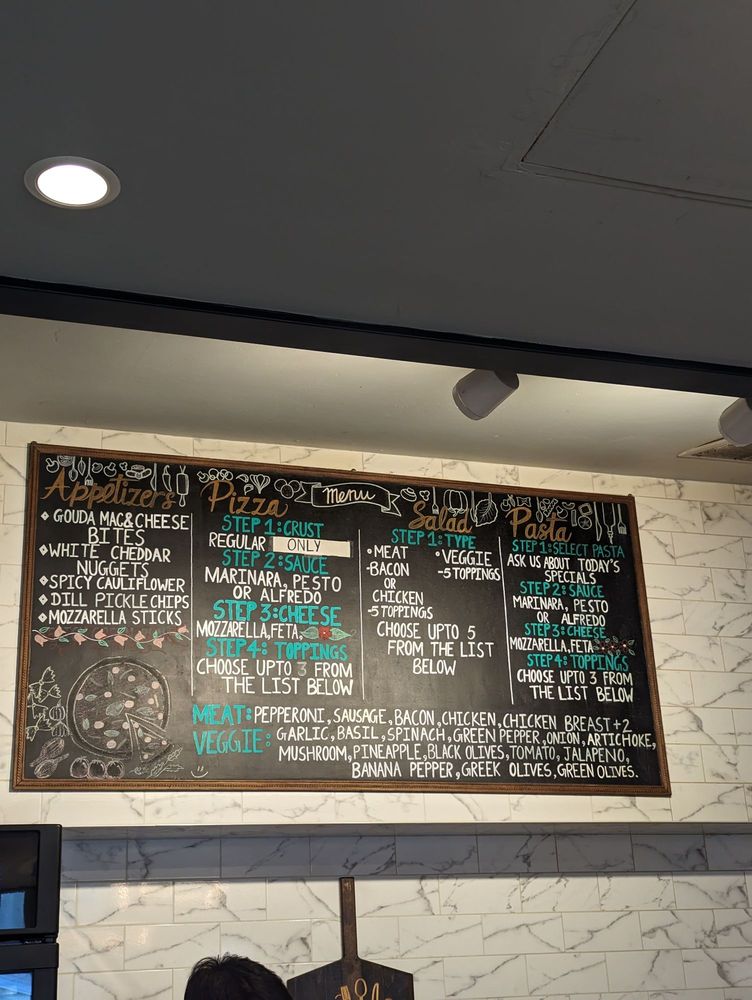 Menu
Appetizers
◆ GOUDA MAC&CHEESE
BITES
◆ WHITE CHEDDAR
NUGGETS
◆ SPICY CAULIFLOWER
◆ DILL PICKLE CHIPS
◆ MOZZARELLA STICKS
Pizza
STEP 1: CRUST
REGULAR ONLY
STEP 2: SAUCE
MARINARA, PESTO
OR ALFREDO
STEP 3: CHEESE
MOZZARELLA, FETA,
STEP 4: TOPPINGS
CHOOSE UPTO 3 FROM
THE LIST BELOW
Salad
STEP 1: TYPE
•MEAT
-BACON
OR
CHICKEN
-5 TOPPINGS
•VEGGIE
-5 TOPPINGS
CHOOSE UPTO 5
FROM THE LIST
BELOW
Pasta
STEP 1: SELECT PASTA
ASK US ABOUT TODAY'S
SPECIALS
STEP 2: SAUCE
MARINARA, PESTO
OR ALFREDO
STEP 3: CHEESE
MOZZARELLA, FETA
STEP 4: TOPPINGS
CHOOSE UPTO 3 FROM
THE LIST BELOW
MEAT: PEPPERONI, SAUSAGE, BACON, CHICKEN, CHICKEN BREAST+2
VEGGIE: GARLIC, BASIL, SPINACH, GREEN PEPPER, ONION, ARTICHOKE,
MUSHROOM, PINEAPPLE, BLACK OLIVES, TOMATO, JALAPENO,
BANANA PEPPER, GREEK OLIVES, GREEN OLIVES.